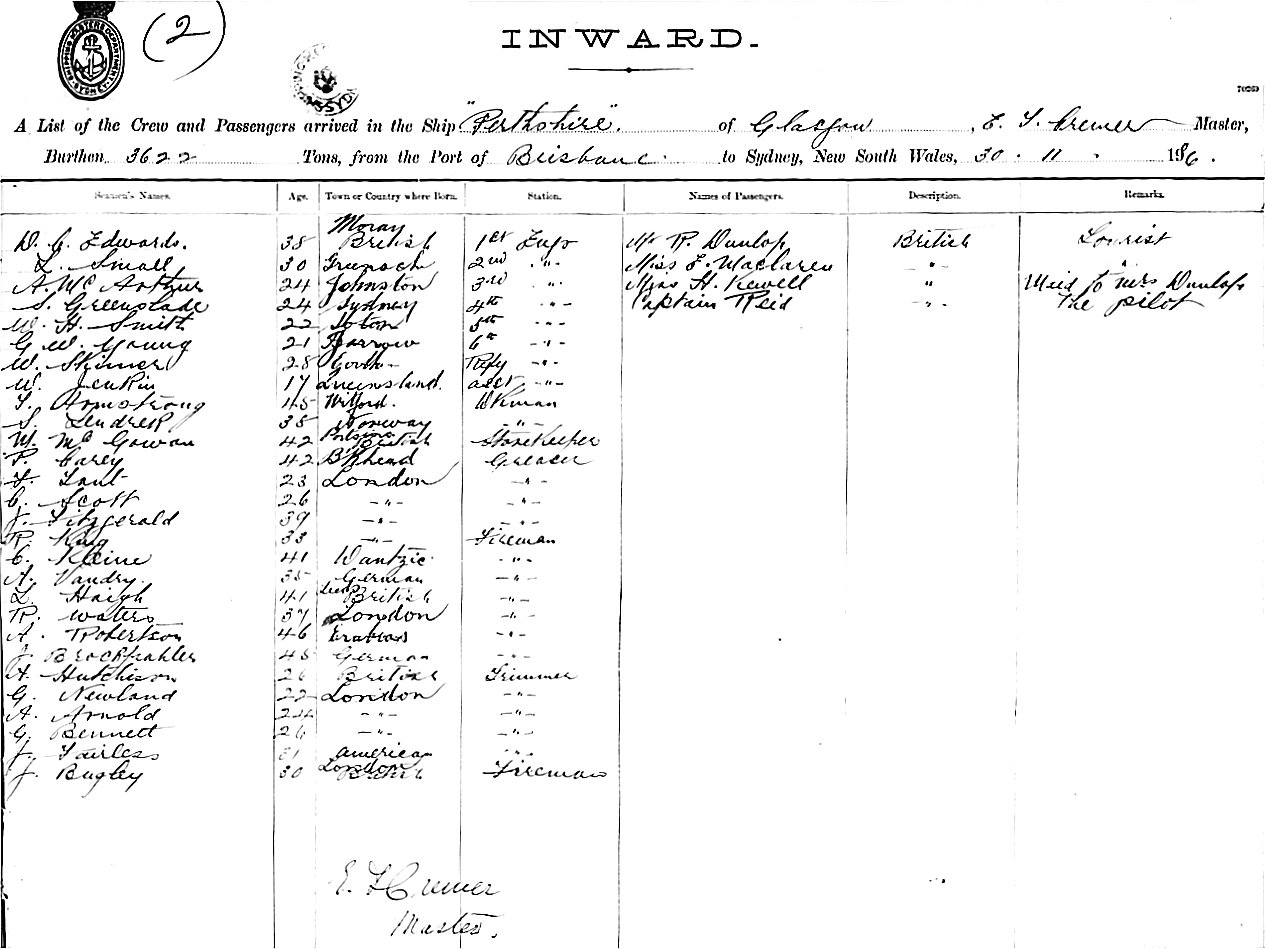 (2)
SHIPPING MASTERS DEPARTMENT SYDNEY
INWARD.
70269
A List of the Crew and Passengers arrived in the Ship "Perthshire". of Glasgow, E. F. Cremer Master,
Burthen 3622 Tons, from the Port of Brisbane to Sydney, New South Wales, 30. 11. 196.
Seamen's Names. Age. Town or Country where Born. Station. Names of Passengers. Description. Remarks.
Moray
D. G. Edwards. 38 British 1st Engr Mr R. Dunlop British Tourist
L. Small 30 Greenock 2nd -"- Miss E. Maclaren -"- "
A. McArthur 24 Johnston 3rd -"- Miss H. Kewell -"- Maid to Mrs Dunlop
S. Greenslade 24 Sydney 4th -"- Captain Reid -"- The pilot
W. H. Smith 22 5th -"-
G. W. Young 21 Barrow 6th -"-
W. Skinner 28 Refg -"-
W. Jenkin 17 Queensland. asst -"-
T. Armstrong 45 Wilford.
S. 38 Norway -"-
M. McGowan 42 British Storekeeper
P. Carey 42 B'khead Greaser
23 London -"-
C. Scott 26 -"- -"-
J. Fitzgerald 39 -"- -"-
R. King 33 -"- Fireman
C. Kleine 41 Dantzic -"-
A. Vandry. 35 German -"-
L. Haigh 41 British -"-
R. Waters 37 London -"-
A. Robertson 46 -"-
J. 45 German -"-
A. Hutchison 26 British Trimmer
G. Newland 22 London -"-
A. Arnold 24 -"- -"-
G. Bennett 26 -"- -"-
J. Fairless 21 American -"-
London
J. Bugley 30 British Fireman
E. F. Cremer
Master.